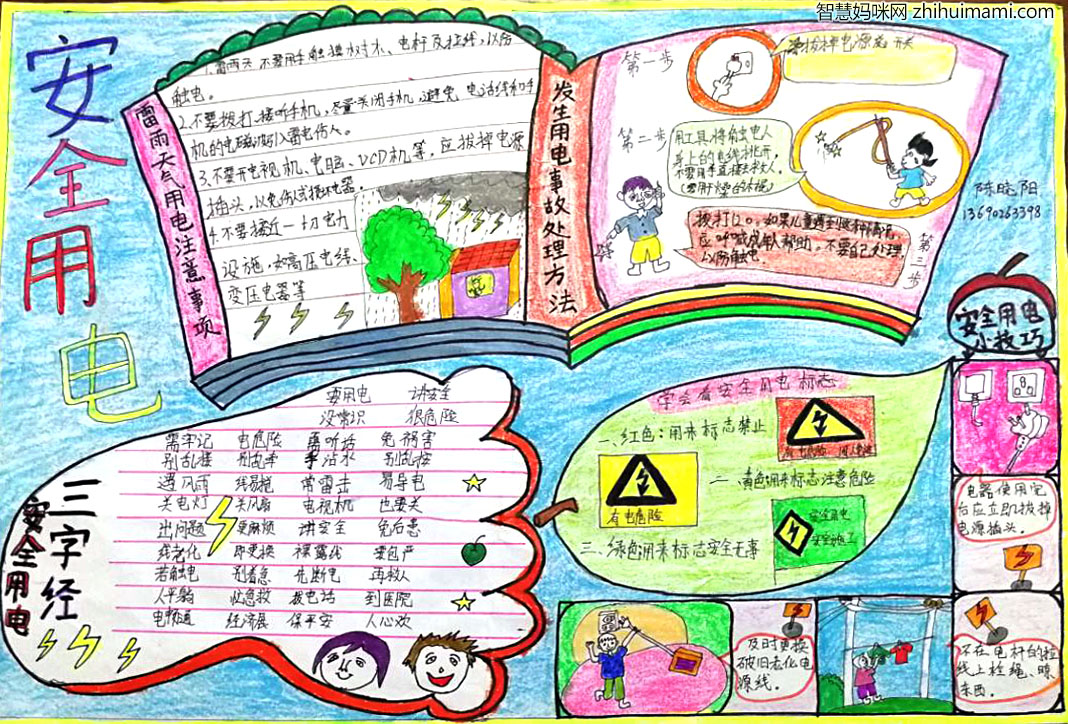 智慧妈咪网 zhihuimami.com
安全用电
雷雨天气用电注意事项
1.雷雨天,不要用手触摸树木、电杆及拉线,以防
触电。
2.不要拨打、接听手机,尽量关闭手机,避免 电话线和手
机的电磁波引雷电伤人。
3.不要开电视机、电脑、VCD机等,应拔掉电源
插头,以免伤或损坏电器。
4.不要接近一切电力
设施,如高压电线、
变压电器等
发生用电事故处理方法
第一步
拔掉电源总开关
第二步
用工具将触电人
身上的电线挑开,
不要用手直接去救人。
第三步
拨打120,如果儿童遇到这种情况,
应呼喊成年人帮助,不要自己处理,
以防触电
陈晓阳
13690263398
三字经
安全用电
要用电 讲安全
没常识 很危险
需牢记 电危险 听话 免祸害
别乱摸 别乱牵 手沾水 别乱按
遇风雨 线易拖 常雷击 易导电
关电灯 关风扇 电视机 也要关
出问题 莫麻烦 讲安全 免后患
线老化 即更换 裸露线 要包严
若触电 别着急 先断电 再救人
人平躺 忙急救 拨电话 到医院
电畅通 经济展 保平安 人心欢
学会看安全用电标志
一、红色:用来标志禁止
有电危险
二、黄色:用来标志注意危险
有电危险
三、绿色:用来标志安全无事
安全用电
安全用电
小技巧
电器使用完
后应立即拔掉
电源插头。
及时更换
破旧老化电
源线。
不在电杆的拉
线上栓绳、晾
东西。